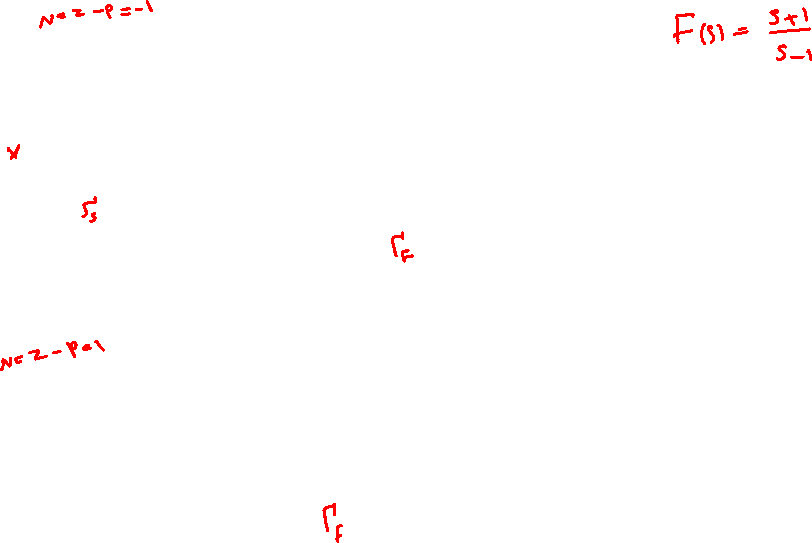 N = Z - P = -1
F(s) = s+1 / s-1
x
Γs
ΓF
N = Z - P = 1
ΓF